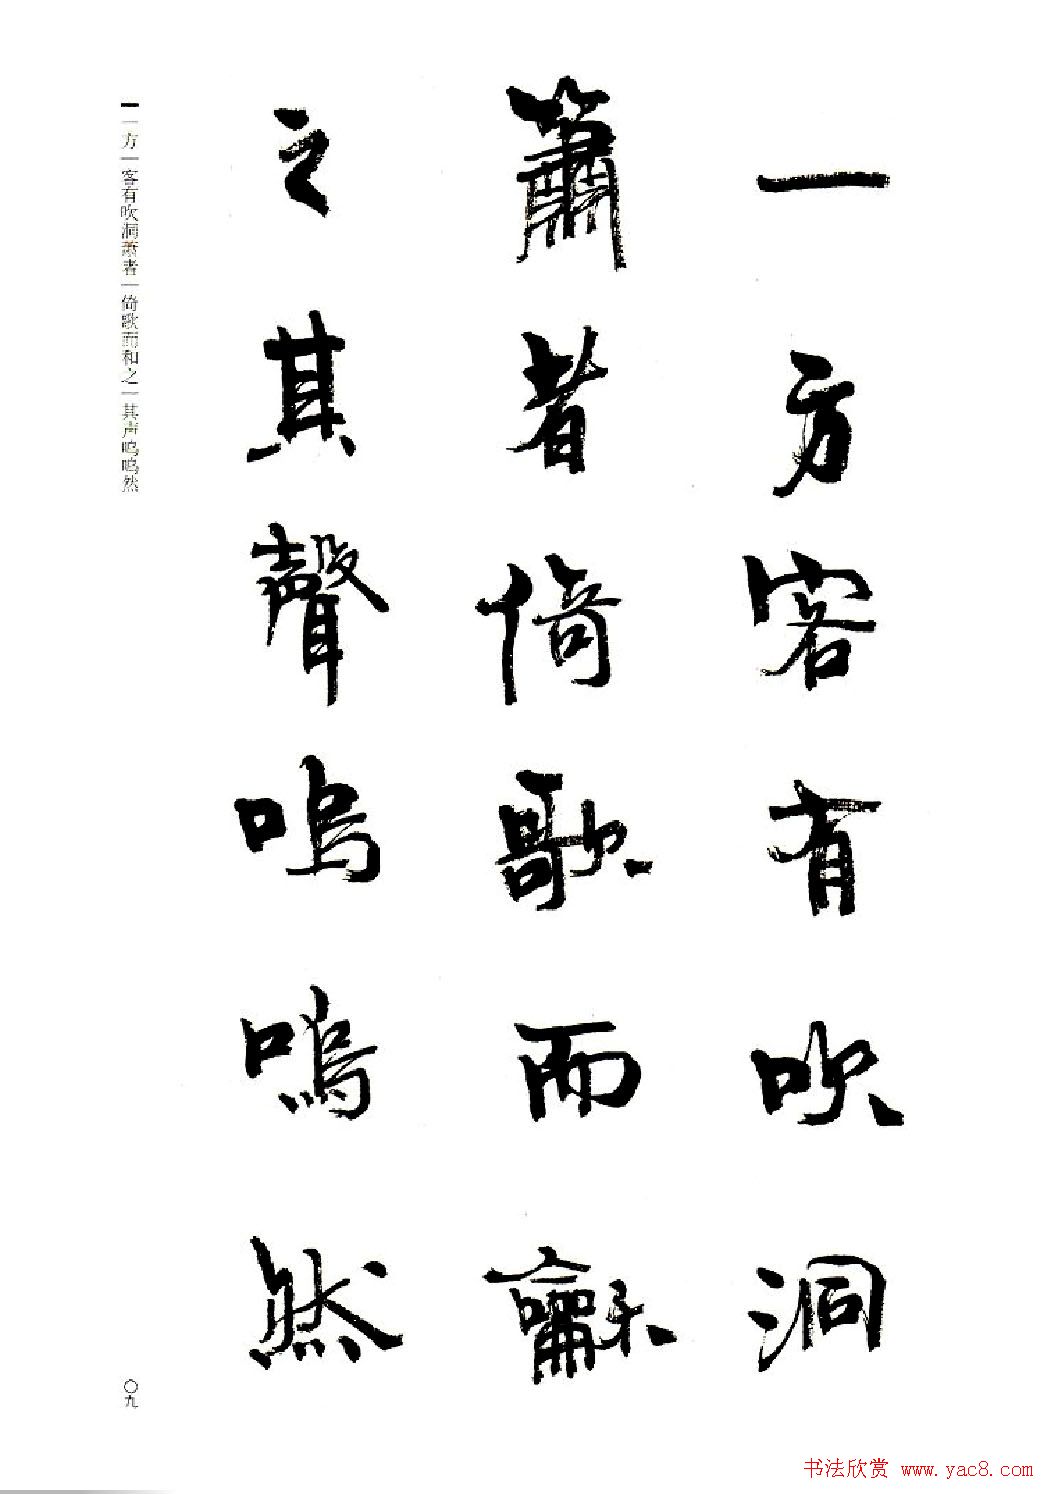 一方客有吹洞
簫者倚歌而龢
之其聲嗚嗚然
一方 客有吹洞萧者 倚歌而和之 其声呜呜然
〇九
书法欣赏 www.yac8.com